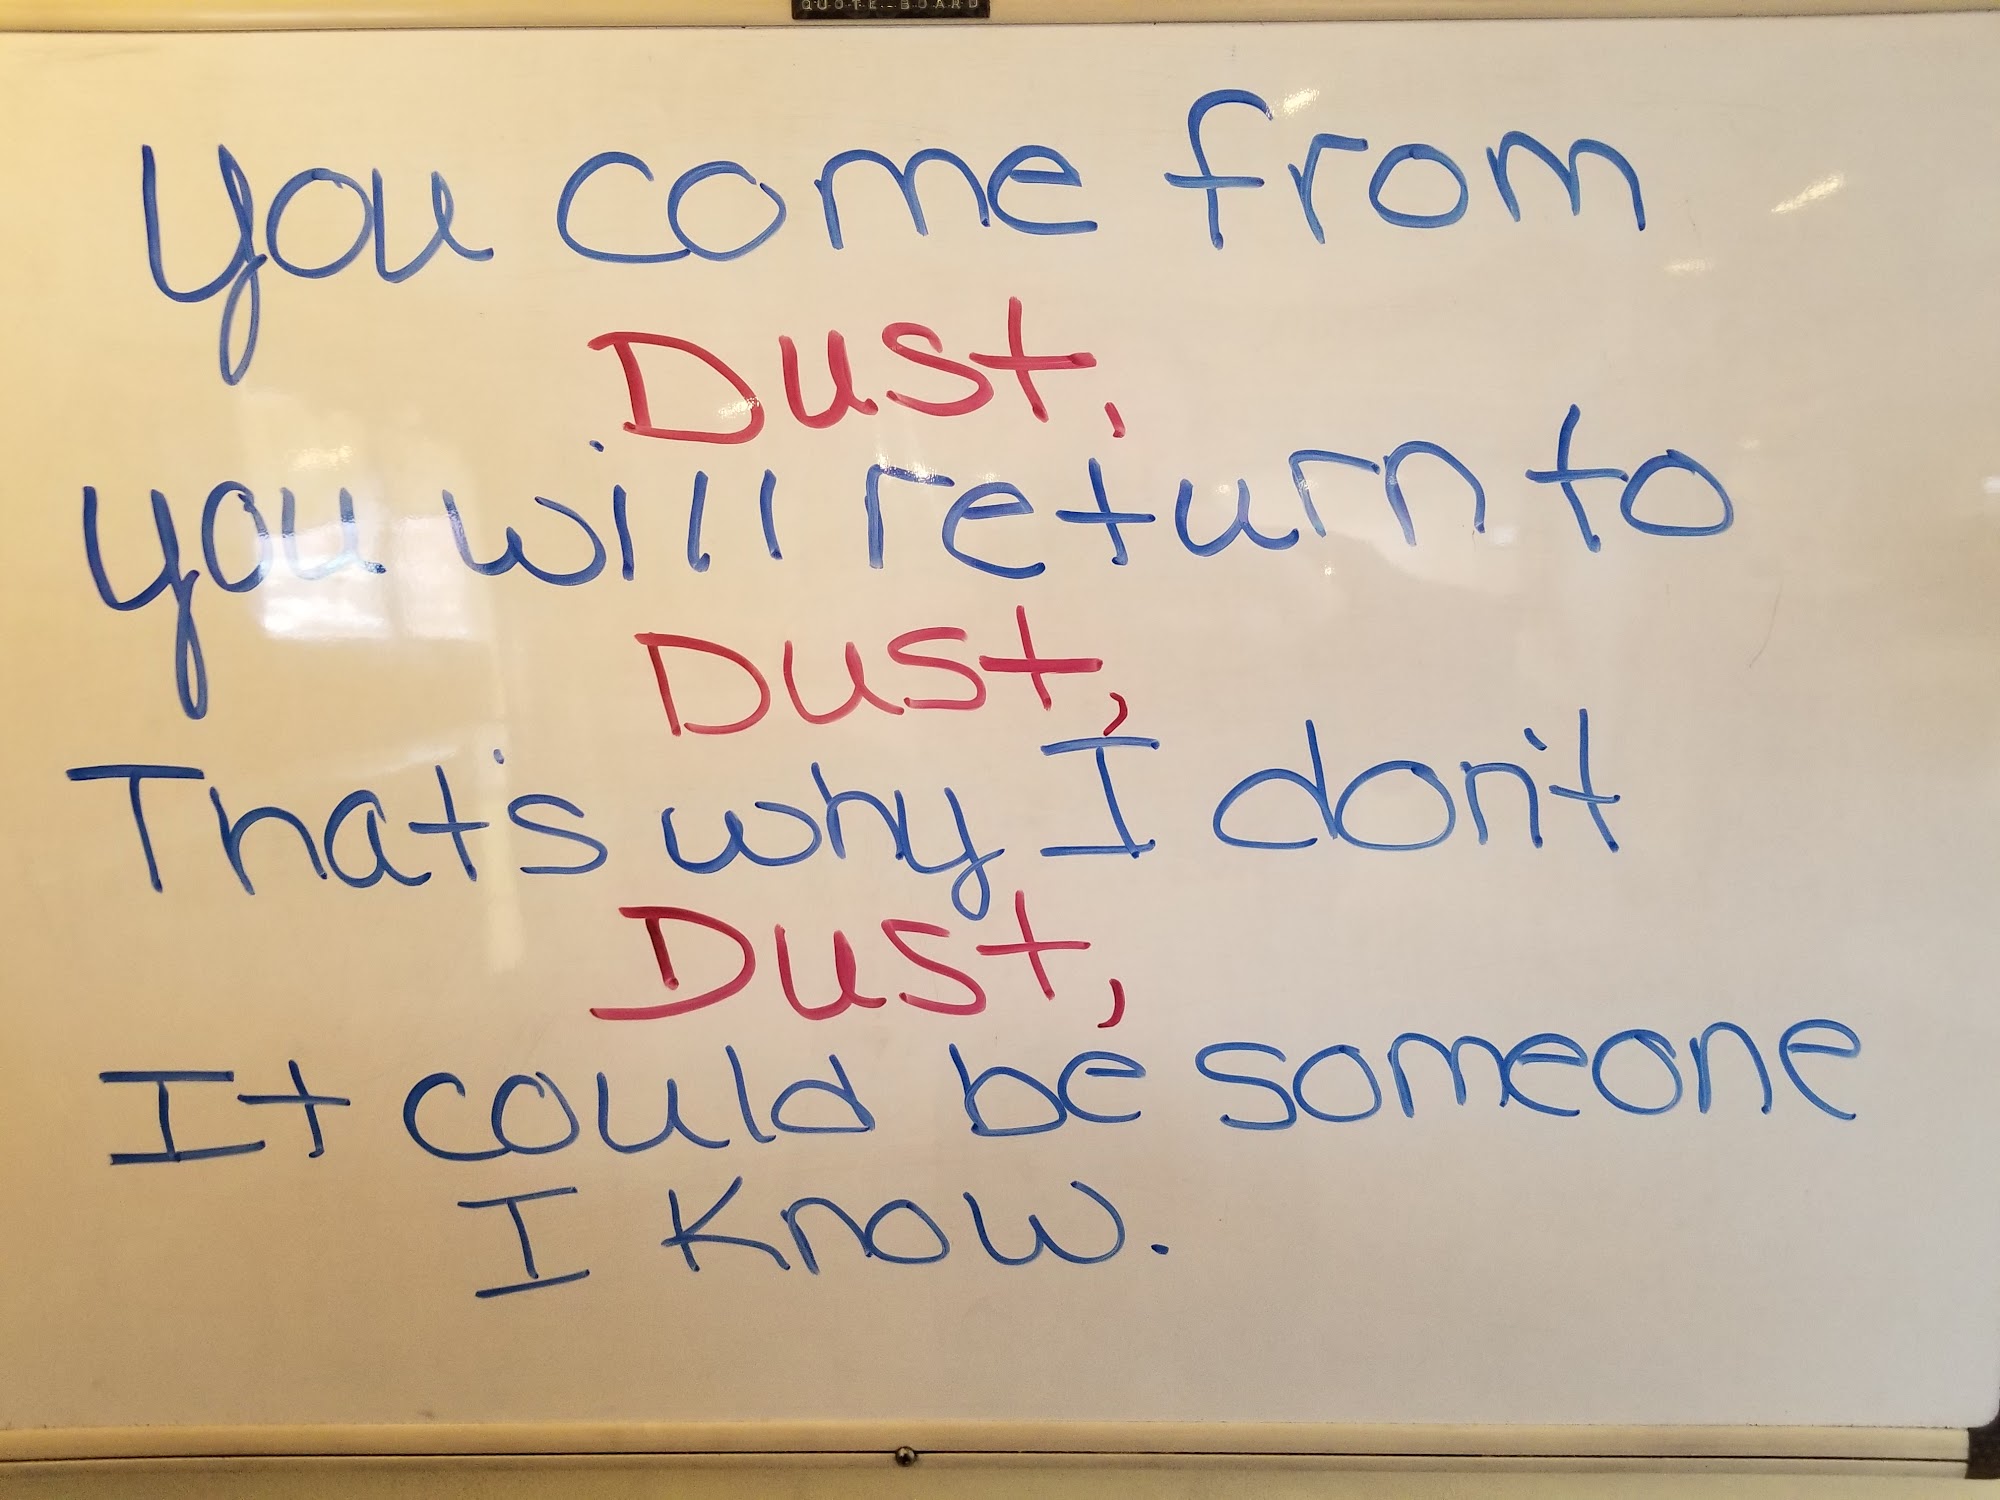 QUOTE-BOARD
You come from
Dust,
you will return to
Dust,
That's why I don't
Dust,
It could be someone
I know.